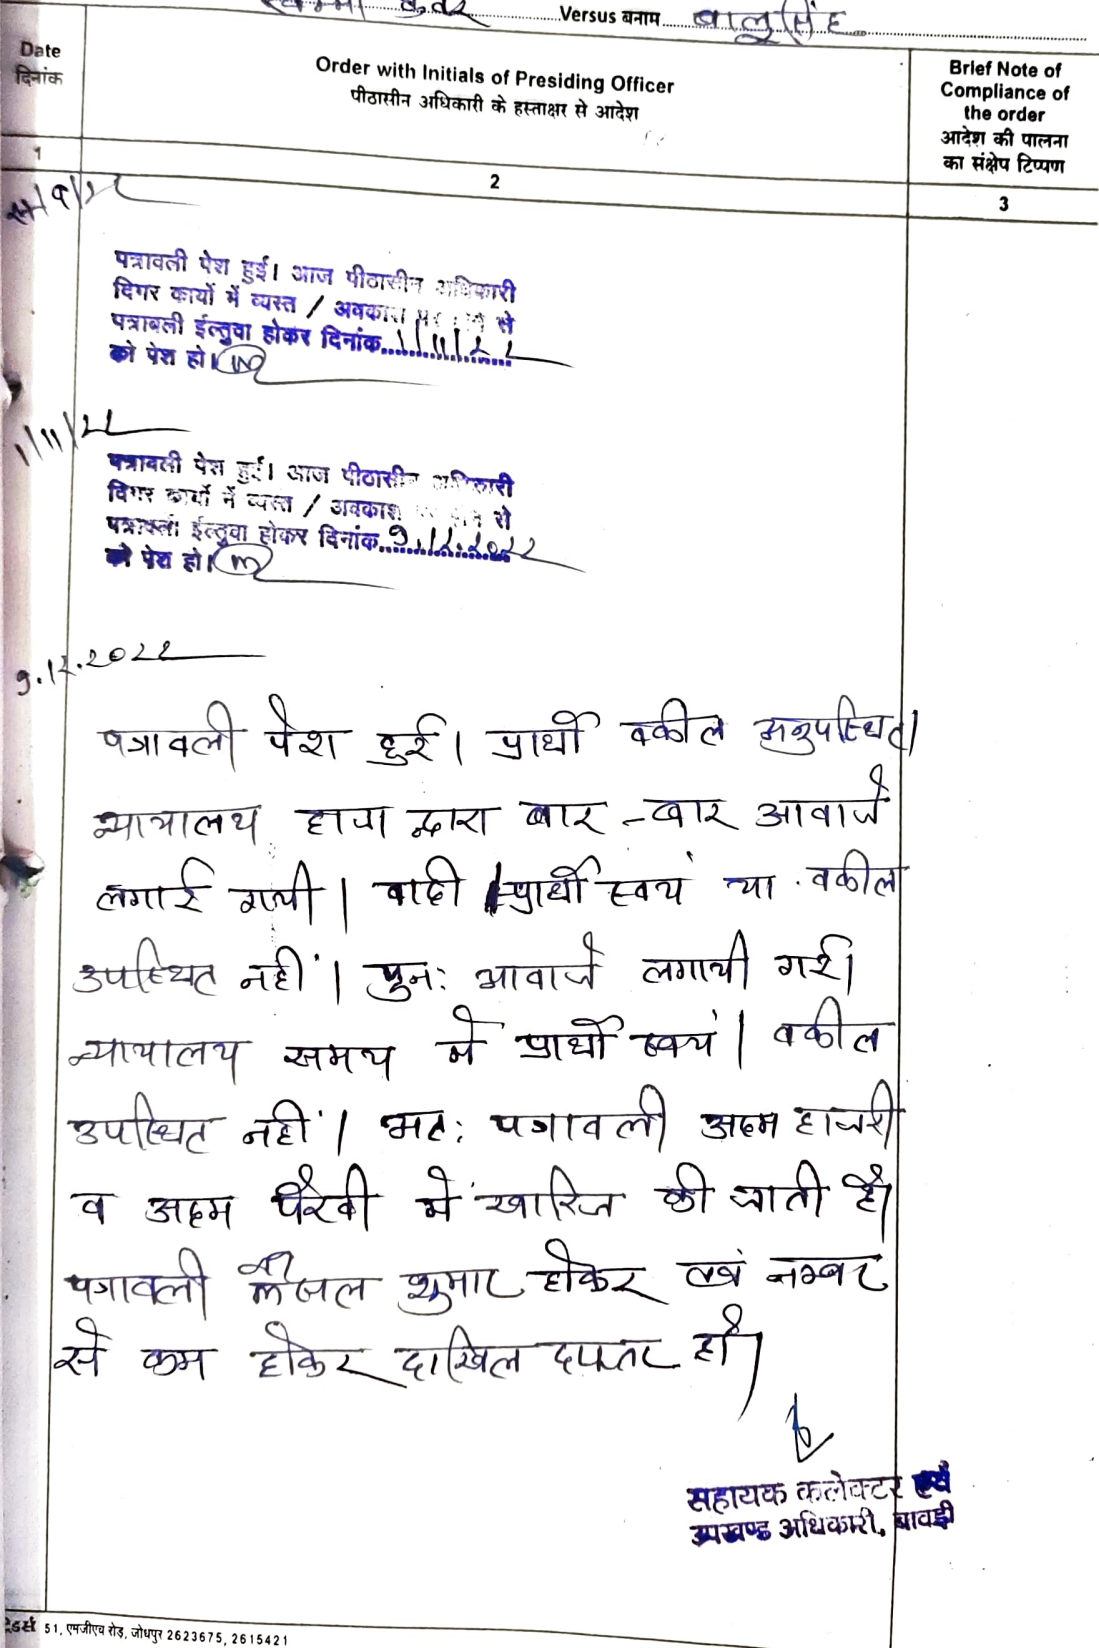 कुंवर Versus बनाम बालुसिंह
Date
दिनांक
Order with Initials of Presiding Officer
पीठासीन अधिकारी के हस्ताक्षर से आदेश
Brief Note of
Compliance of
the order
आदेश की पालना
का संक्षेप टिप्पण
1
2
3
पत्रावली पेश हुई। आज पीठासीन अधिकारी
दिगर कार्यो में व्यस्त / अवकाश से
पत्रावली ईल्तुवा होकर दिनांक 1/11/22
को पेश हो।
1/11/22
पत्रावली पेश हुई। आज पीठासीन अधिकारी
दिगर कार्यो में व्यस्त / अवकाश से
पत्रावली ईल्तुवा होकर दिनांक 9.12.2022
को पेश हो।
9.12.2022
पत्रावली पेश हुई। प्रार्थी वकील अनुपस्थित।
न्यायालय हाजा द्वारा बार-बार आवाजे
लगाई गयी। वादी प्रार्थी स्वयं या वकील
उपस्थित नहीं। पुन: आवाजे लगायी गई।
न्यायालय समय मे प्रार्थी स्वयं | वकील
उपस्थित नहीं। अत: पत्रावली अदम हाजरी
व अदम पैरवी में खारिज की जाती है।
पत्रावली फैसल शुमार होकर एवं नम्बर
से कम होकर दाखिल दफ्तर हो।
सहायक कलेक्टर एवं
उपखण्ड अधिकारी, बावड़ी
51, एमजीएच रोड़, जोधपुर 2623675, 2615421